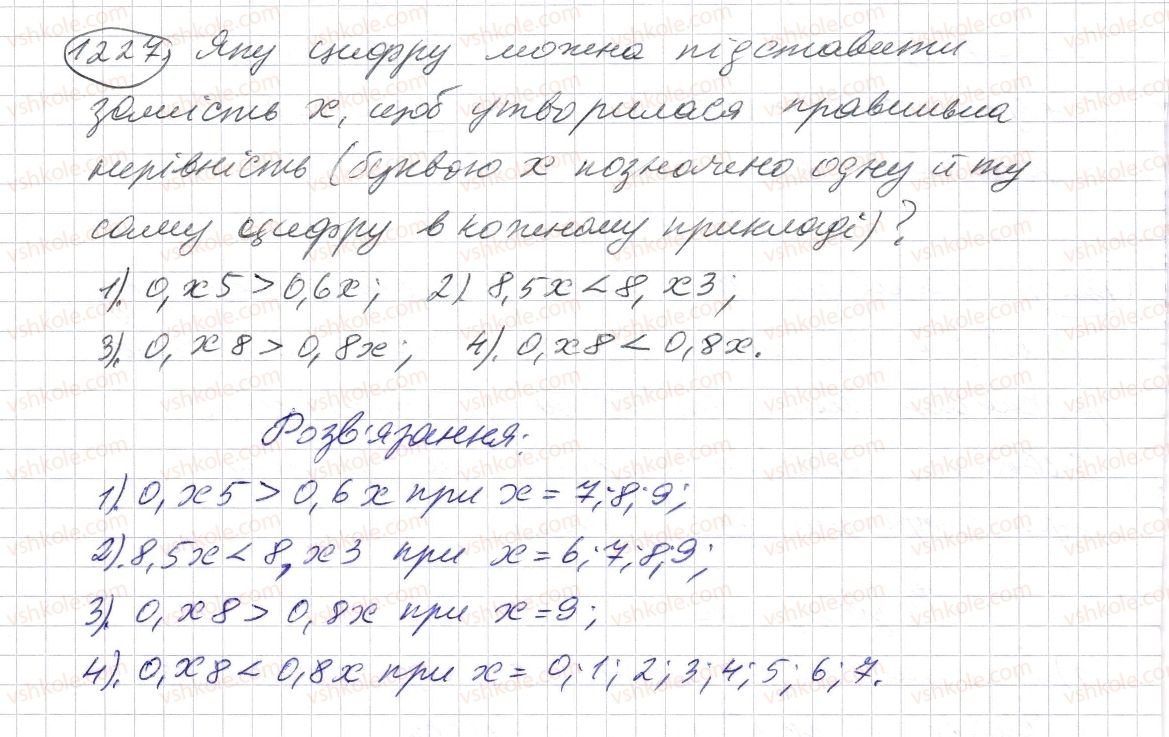 1227. Яку цифру можна підставити
замість x, щоб утворилася правильна
нерівність (буквою x позначено одну й ту
саму цифру в кожному прикладі)?
1). 0,x5 > 0,6x; 2) 8,5x < 8,x3;
3). 0,x8 > 0,8x; 4). 0,x8 < 0,8x.
Розв'язання:
1). 0,x5 > 0,6x при x = 7; 8; 9;
2). 8,5x < 8,x3 при x = 6; 7; 8; 9;
3). 0,x8 > 0,8x при x = 9;
4). 0,x8 < 0,8x при x = 0; 1; 2; 3; 4; 5; 6; 7.